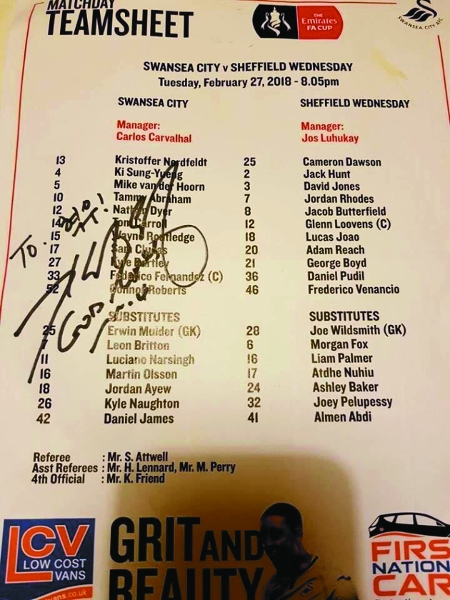 MATCHDAY
TEAMSHEET
The Emirates FA CUP
SWANSEA CITY AFC
SWANSEA CITY v SHEFFIELD WEDNESDAY
Tuesday, February 27, 2018 - 8.05pm
SWANSEA CITY SHEFFIELD WEDNESDAY
Manager: Manager:
Carlos Carvalhal Jos Luhukay
13 Kristoffer Nordfeldt 25 Cameron Dawson
4 Ki Sung-Yueng 2 Jack Hunt
5 Mike van der Hoorn 3 David Jones
10 Tammy Abraham 7 Jordan Rhodes
12 Nathan Dyer 8 Jacob Butterfield
14 Tom Carroll 12 Glenn Loovens (C)
15 Wayne Routledge 18 Lucas Joao
17 Sam Clucas 20 Adam Reach
27 Kyle Bartley 21 George Boyd
33 Federico Fernandez (C) 36 Daniel Pudil
52 Connor Roberts 46 Frederico Venancio
TO:
SUBSTITUTES SUBSTITUTES
25 Erwin Mulder (GK) 28 Joe Wildsmith (GK)
7 Leon Britton 6 Morgan Fox
11 Luciano Narsingh 16 Liam Palmer
16 Martin Olsson 17 Atdhe Nuhiu
18 Jordan Ayew 24 Ashley Baker
26 Kyle Naughton 32 Joey Pelupessy
42 Daniel James 41 Almen Abdi
Referee : Mr. S. Attwell
Asst Referees : Mr. H. Lennard, Mr. M. Perry
4th Official : Mr. K. Friend
LCV
LOW COST
VANS
vans.co.uk
GRIT AND
BEAUTY
FIRS
NATION
CAR